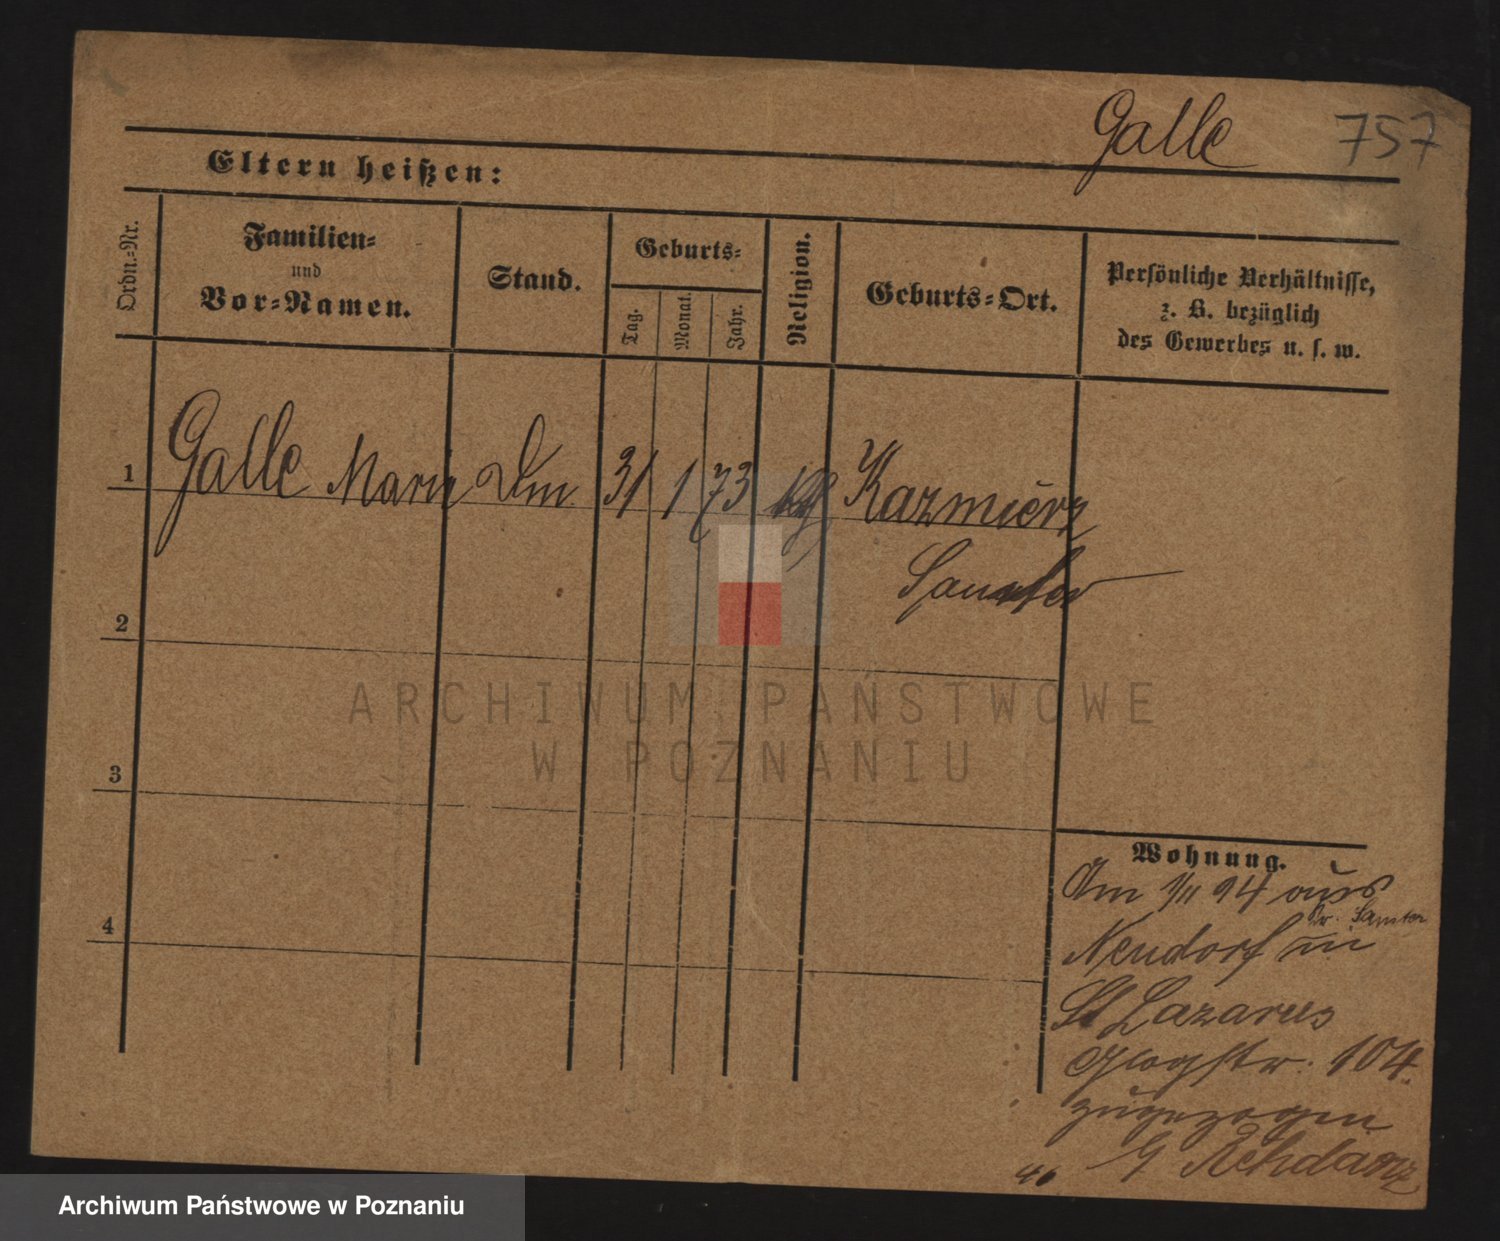 Galle 757
Eltern heißen:
Ordn.-Nr.
Familien-
und
Vor-Namen.
Stand.
Geburts-
Tag.
Monat.
Jahr.
Religion.
Geburts-Ort.
Persönliche Verhältnisse,
z. B. bezüglich
des Gewerbes u. s. w.
1 Galle Marie 31 1 73 Kazmierz
Samter
2
ARCHIWUM PAŃSTWOWE
W POZNANIU
3
Wohnung.
Am 1/11 94 aus
Kr. Samter
4
Neudorf in
St Lazarus
Glogstr. 104.
zugezogen
Archiwum Państwowe w Poznaniu